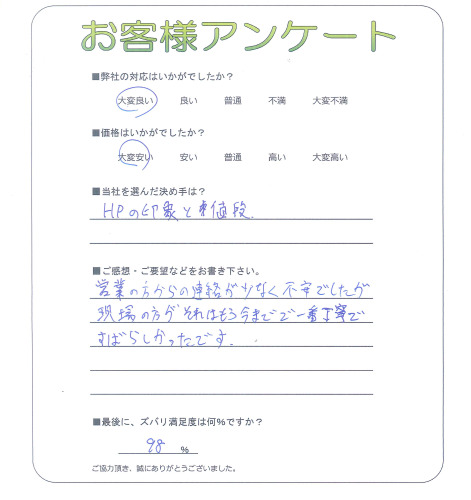 お客様アンケート
■弊社の対応はいかがでしたか？
大変良い 良い 普通 不満 大変不満
■価格はいかがでしたか？
大変安い 安い 普通 高い 大変高い
■当社を選んだ決め手は？
HPの印象と値段.
■ご感想・ご要望などをお書き下さい。
営業の方からの連絡が少なく不安でしたが
現場の方がそれはもう今までで一番丁寧で
すばらしかったです.
■最後に、ズバリ満足度は何%ですか？
98 %
ご協力頂き、誠にありがとうございました。